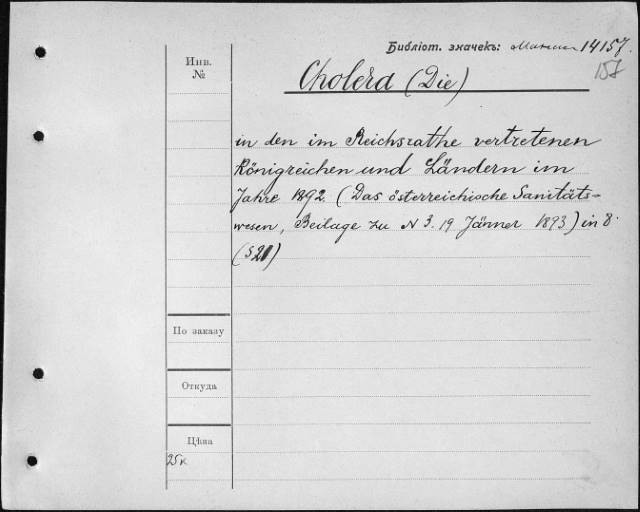 Библіот. значекъ: 14157.
157
Инв.
№
Cholera (Die)
in den im Reichsrathe vertretenen
Königreichen und Ländern im
Jahre 1892. (Das österreichische Sanitäts-
wesen, Beilage zu N 3. 19 Jänner 1893) in 8.
(S 21)
По заказу
Откуда
Цѣна
25к